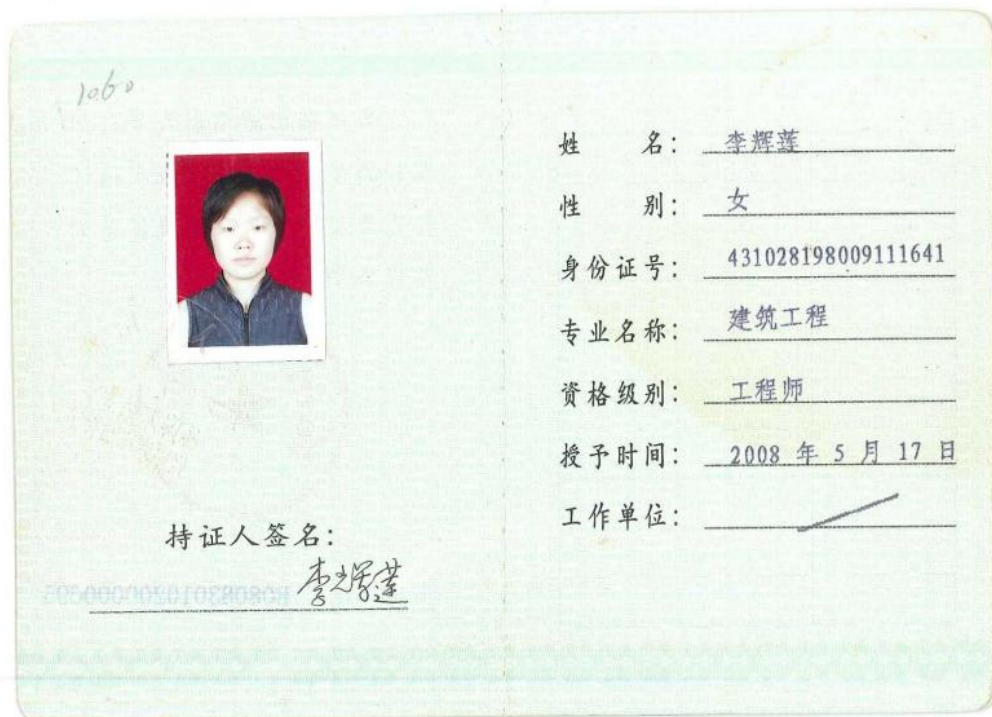 1060
持证人签名：
李辉莲
姓 名： 李辉莲
性 别： 女
身份证号： 431028198009111641
专业名称： 建筑工程
资格级别： 工程师
授予时间： 2008 年 5 月 17 日
工作单位：